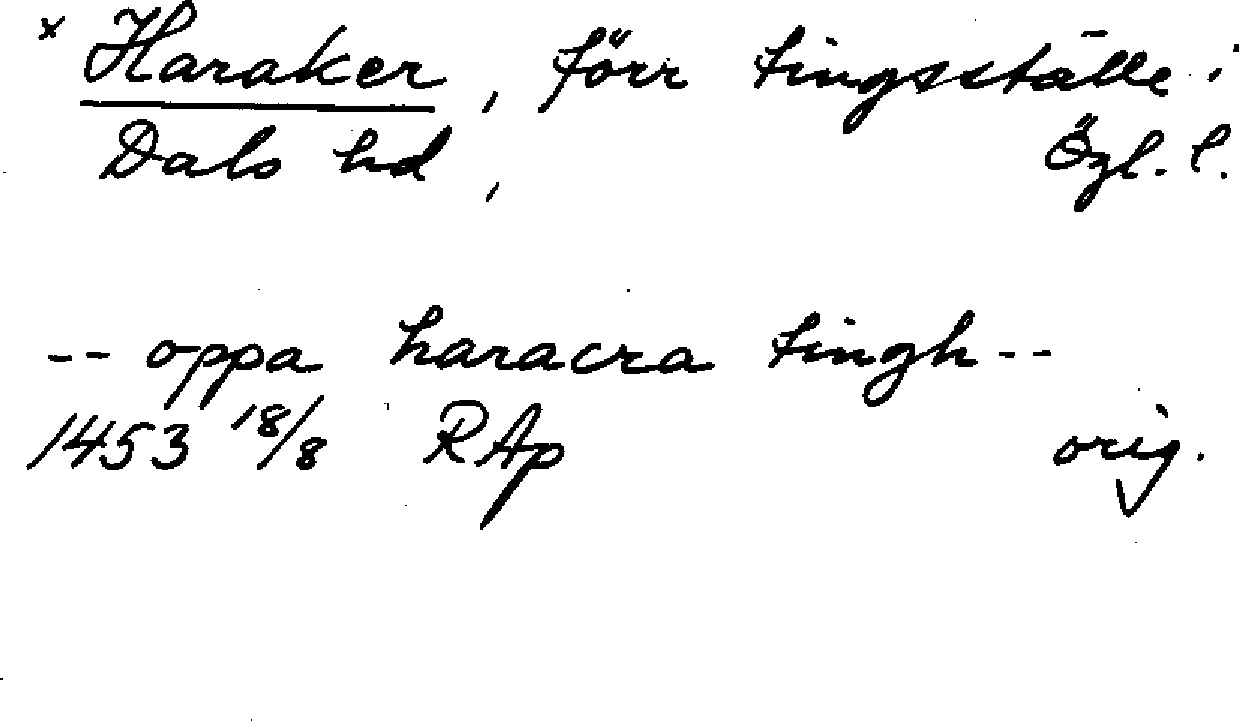 × Haraker, förr tingsställe i
Dals hd, Ögl. l.
-- oppa haracra tingh --
1453 18/8 RAp orig.